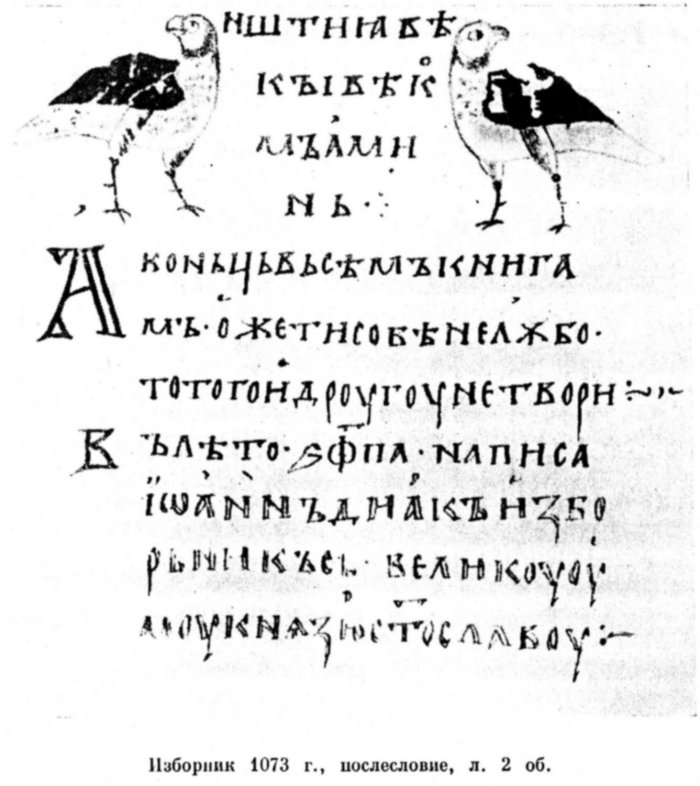 НШТНІАВѢ
КЪІВѢК
МЪАМН
НЬ·:·
А КОНЬЦЬВЬСѢМЪКНИГА
МЪ·ОЖЕТИСОБѢНЕЛЖБО·
ТОТОГОИДРОУГОУНЕТВОРИ:~
В ЪЛѢТО·ЅФПА·НАПИСА
ІѠАННЪДИАКЪИЗБО
РЬНИКЪСЬ ВЕЛИКОУОУ
МОУКНѦЗЮСТОСЛАВОУ:~
Изборник 1073 г., послесловие, л. 2 об.